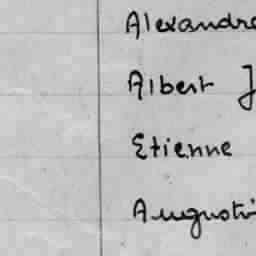 Alexandre
Albert J
Etienne
Augusti